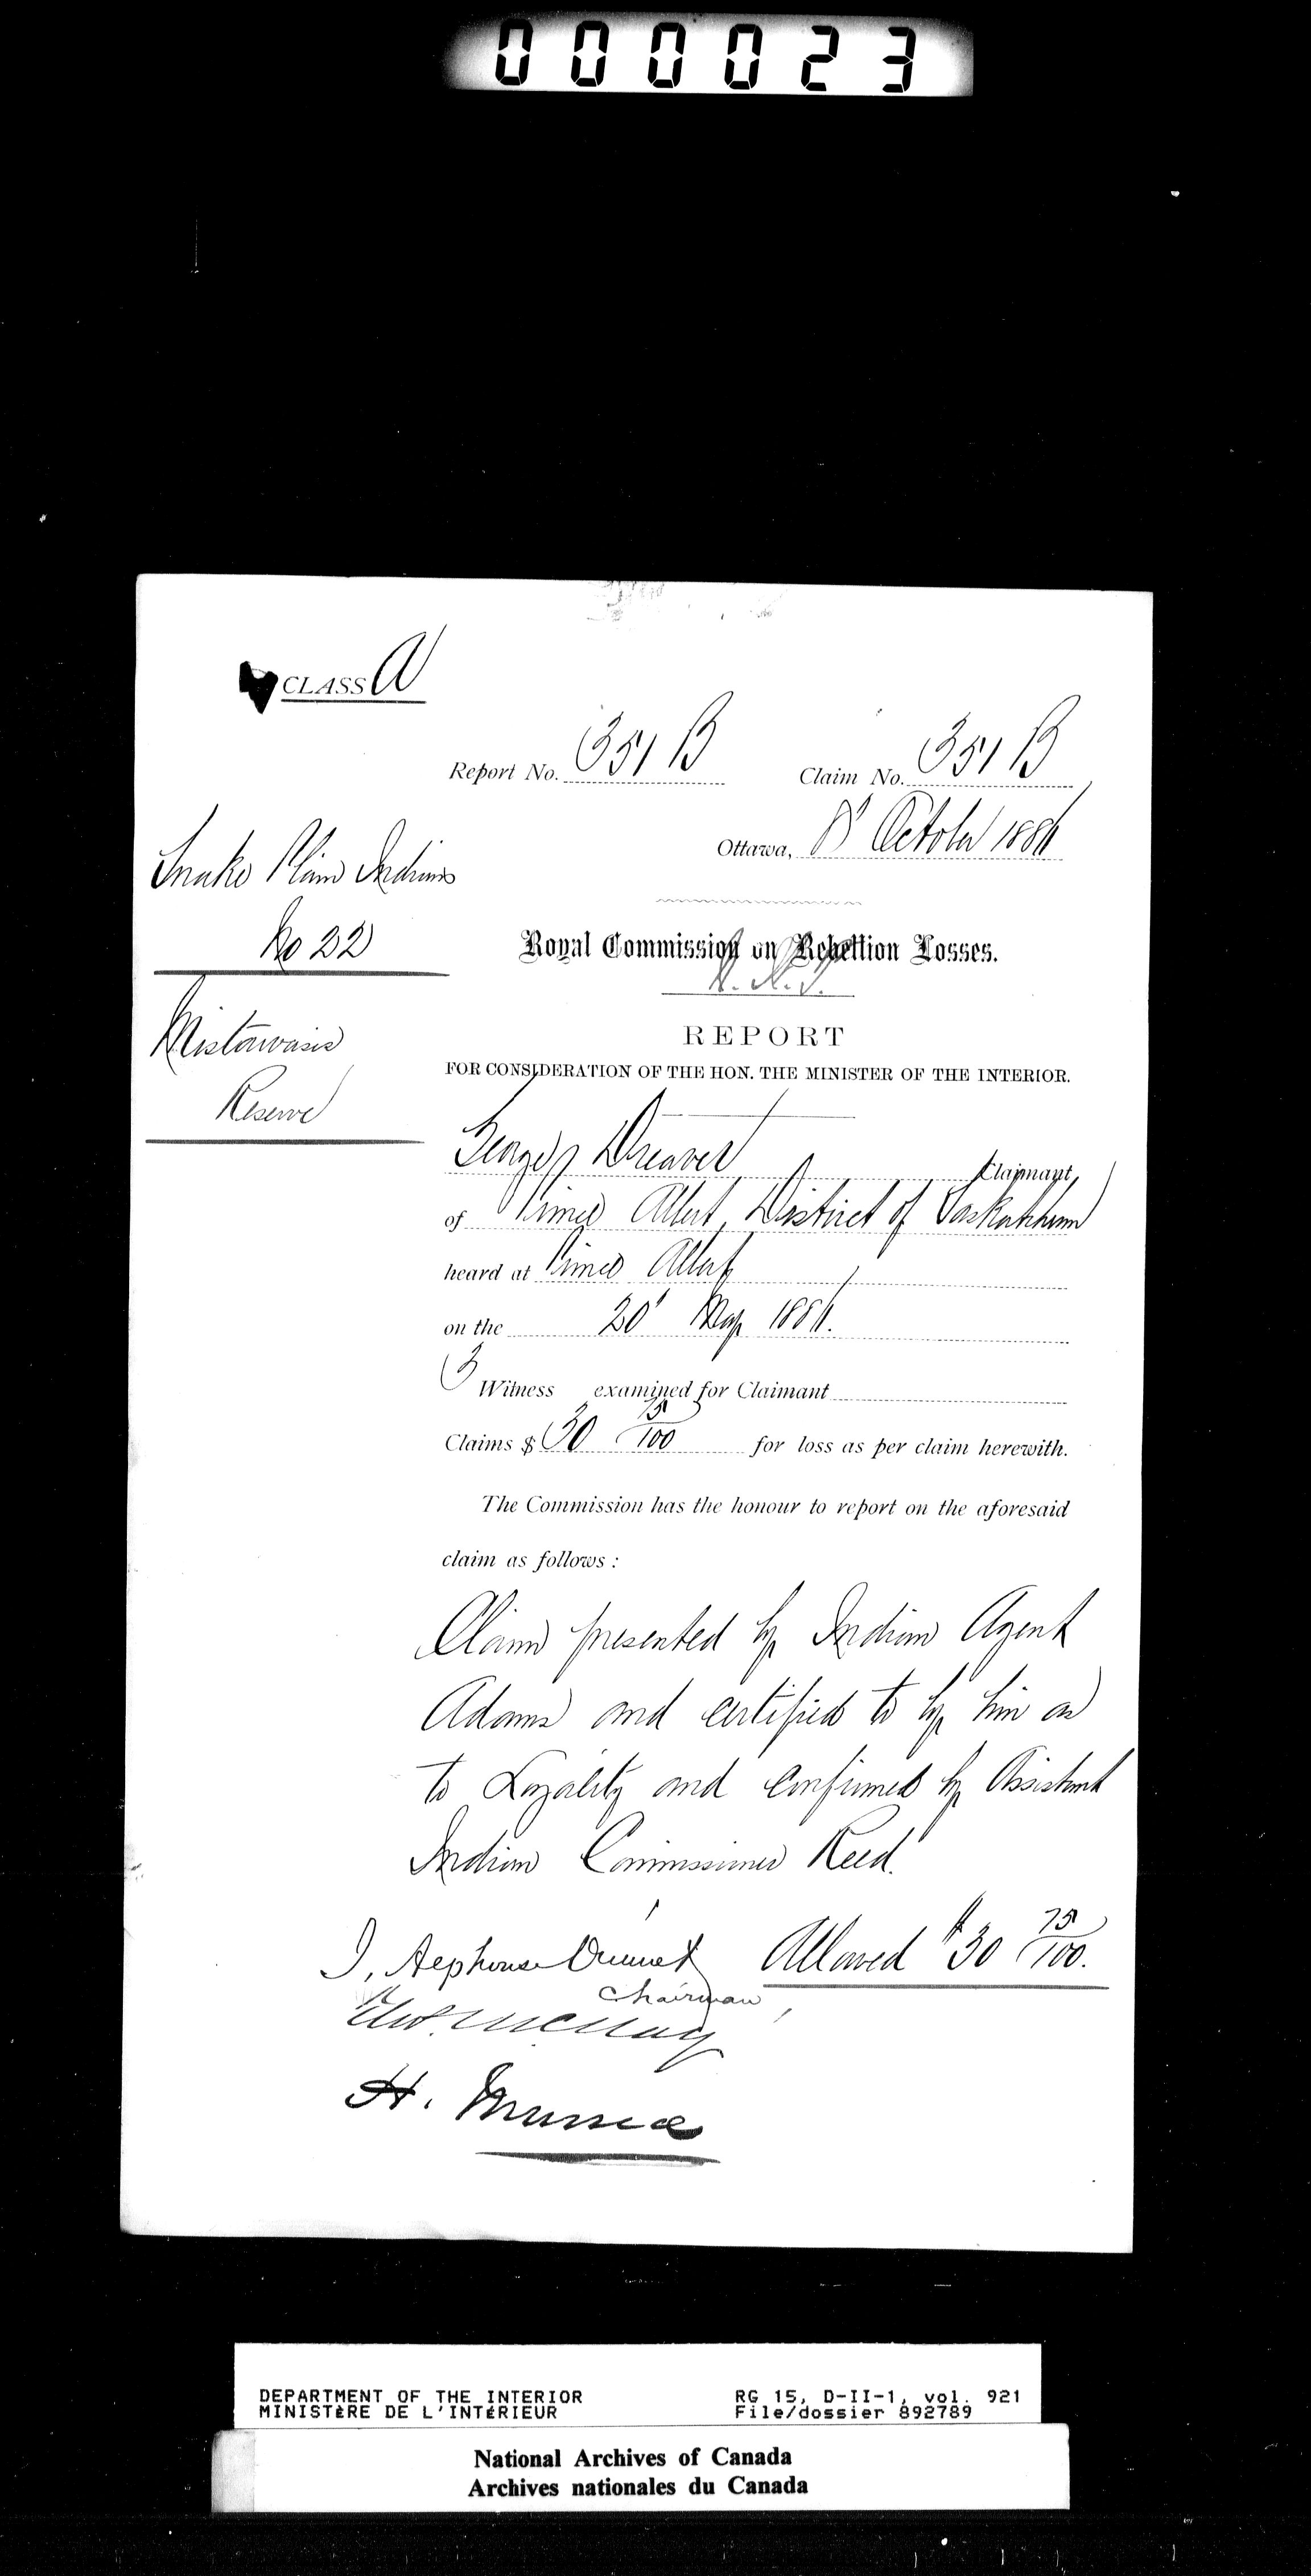 000023
CLASS A
Report No. 351 B Claim No. 351 B
Ottawa, 8' October 1886
Snake Plain Indians
No 22
Royal Commission on Rebellion Losses.
Mistawasis
Reserve
REPORT
FOR CONSIDERATION OF THE HON. THE MINISTER OF THE INTERIOR.
George Dreaver Claimant,
of Prince Albert, District of Saskatchewan
heard at Prince Albert
on the 20' May 1886.
3 Witness examined for Claimant
Claims $ 30 75/100 for loss as per claim herewith.
The Commission has the honour to report on the aforesaid
claim as follows:
Claim presented by Indian Agent
Adams and certified to by him as
to Loyality and confirmed by Assistant
Indian Commissioner Reed.
J. Alphonse Ouimet Allowed $30 75/100.
Chairman,
H. Muma
DEPARTMENT OF THE INTERIOR RG 15, D-II-1, vol. 921
MINISTÈRE DE L'INTÉRIEUR File/dossier 892789
National Archives of Canada
Archives nationales du Canada